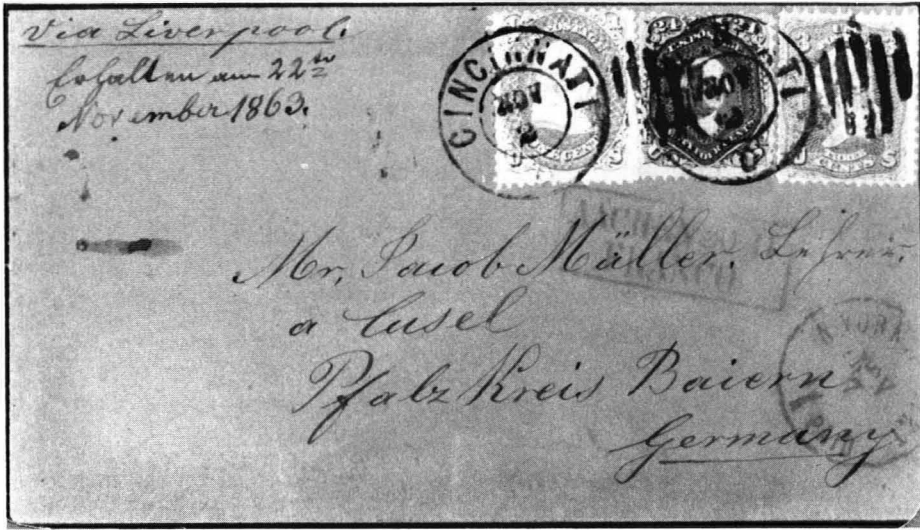 Via Liverpool.
Erhalten am 22te
November 1863.
CINCINNATI
NOV
2
NOV
2
24 24
U S
U S
Mr, Jacob Müller. Lehrer.
a Cusel
Pfalz Kreis Baiern
Germany
YORK